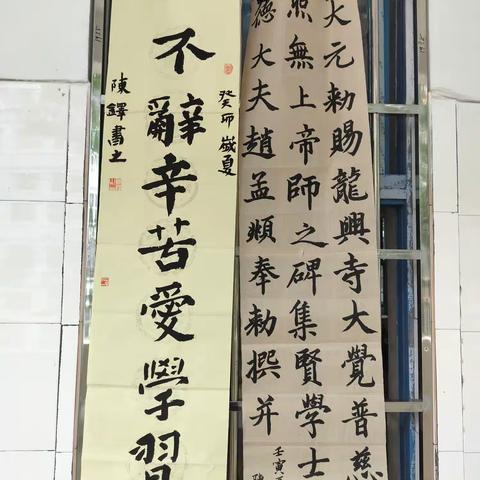 大元勅賜龍興寺大覺普慈
照無上帝師之碑集賢學士
德大夫趙孟頫奉勅撰并
壬寅
癸卯歲夏
不辭辛苦愛學習
陳鐸書之